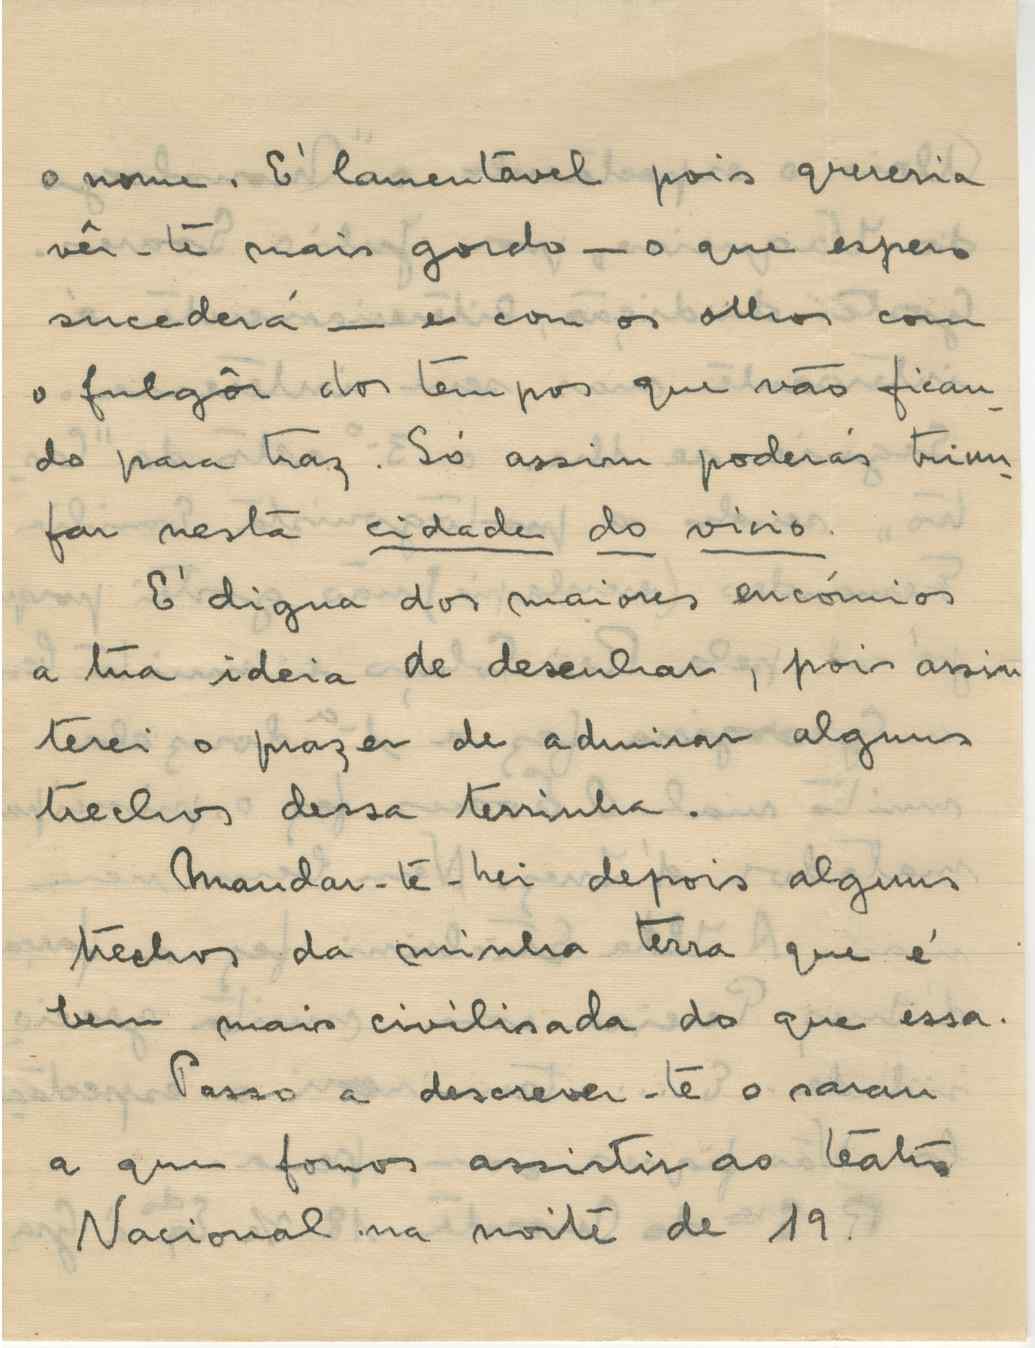 o nome. E' lamentavel pois quereria
vêr-te mais gordo — o que espero
sucederá — e com os olhos com
o fulgôr dos tempos que vão fican-
do para traz. Só assim poderás triun-
far nesta cidade do vicio.
E' digna dos maiores encómios
a tua ideia de desenhar, pois assim
terei o prazer de admirar alguns
trechos dessa terrinha.
Mandar-te-hei depois alguns
trechos da minha terra que é
bem mais civilisada do que essa.
Passo a descrever-te o sarau
a que fomos assistir ao teatro
Nacional na noite de 19.